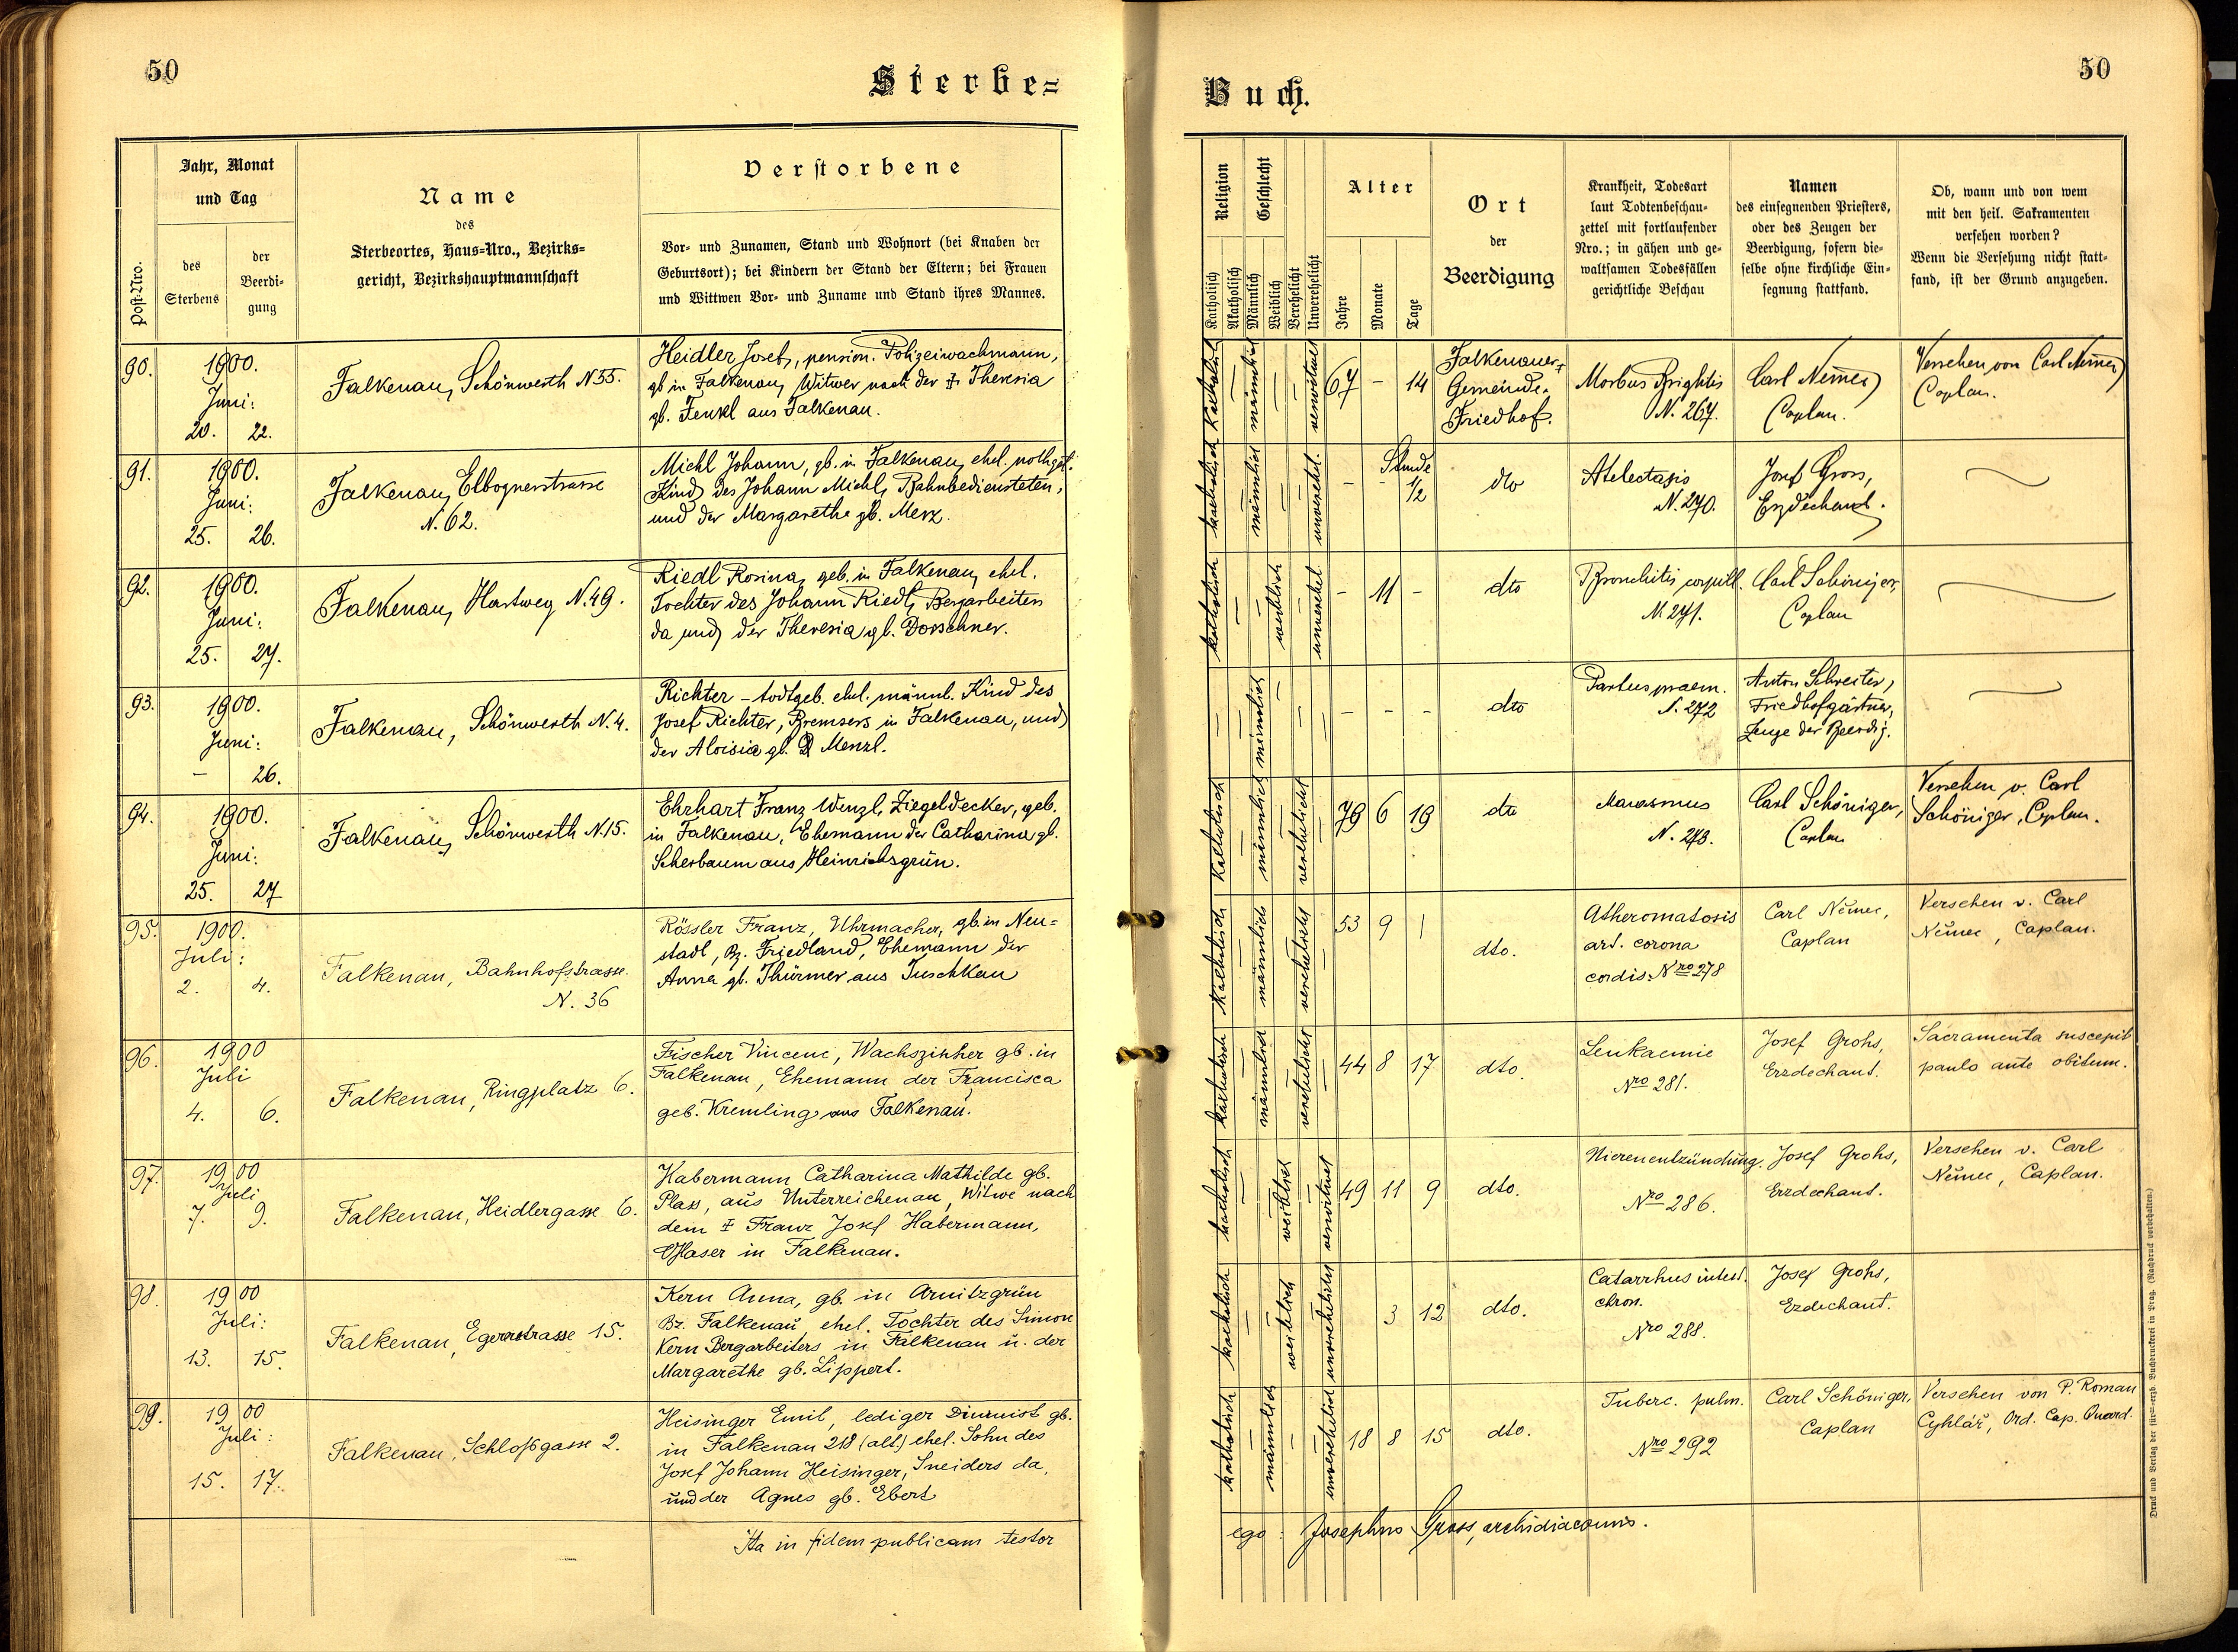 50
Sterbe=
Jahr, Monat
und Tag
Post-Nro.
des
Sterbens
der
Beerdi=
gung
Name
des
Sterbeortes, Haus=Nro., Bezirks=
gericht, Bezirkshauptmannschaft
Verstorbene
Vor- und Zunamen, Stand und Wohnort (bei Knaben der
Geburtsort); bei Kindern der Stand der Eltern; bei Frauen
und Wittwen Vor- und Zuname und Stand ihres Mannes.
90.
1900.
Juni:
20. 22.
Falkenau, Schönwerth N 55.
Heidler Josef, pension. Polizeiwachmann,
gb in Falkenau, Witwer nach der † Theresia
gb. Fenkl aus Falkenau.
91.
1900.
Juni:
25. 26.
Falkenau, Elbognerstrasse
N. 62.
Michl Johann, gb. in Falkenau, ehel. nothget.
Kind des Johann Michl, Bahnbediensteten,
und der Margarethe gb. Merz.
92.
1900.
Juni:
25. 27.
Falkenau, Hartweg N. 49.
Riedl Rosina, geb. in Falkenau, ehel.
Tochter des Johann Riedl, Bergarbeiters
da und der Theresia gb. Dorschner.
93.
1900.
Juni:
– 26.
Falkenau, Schönwerth N. 4.
Richter – todtgeb. ehel. männl. Kind des
Josef Richter, Bremsers in Falkenau, und
der Aloisia gb. Menzl.
94.
1900.
Juni:
25. 27
Falkenau, Schönwerth N. 15.
Ehrhart Franz Wenzl, Ziegeldecker, geb.
in Falkenau, Ehemann der Catharina gb.
Scherbaum aus Heinrichsgrün.
95.
1900.
Juli:
2. 4.
Falkenau, Bahnhofstrasse.
N. 36
Rössler Franz, Uhrmacher, gb. in Neu=
stadl, Bz. Friedland, Ehemann der
Anna gb. Thürmer aus Tuschkau
96.
1900
Juli
4. 6.
Falkenau, Ringplatz 6.
Fischer Vincenc, Wachszieher gb. in
Falkenau, Ehemann der Francisca
geb. Kremling aus Falkenau.
97.
1900
Juli
7. 9.
Falkenau, Heidlergasse 6.
Habermann Catharina Mathilde gb.
Plass, aus Unterreichenau, Witwe nach
dem † Franz Josef Habermann,
Glaser in Falkenau.
98.
1900
Juli:
13. 15.
Falkenau, Egererstrasse 15.
Kern Anna, gb. in Arnitzgrün
Bz. Falkenau ehel. Tochter des Simon
Kern Bergarbeiters in Falkenau u. der
Margarethe gb. Lippert.
99.
1900
Juli:
15. 17.
Falkenau, Schloßgasse 2.
Heisinger Emil, lediger Diurnist gb.
in Falkenau 218 (alt) ehel. Sohn des
Josef Johann Heisinger, Sneiders da,
und der Agnes gb. Ebert
Ita in fidem publicam testor
Buch.
50
Religion
Geschlecht
Katholisch
Akatholisch
Männlich
Weiblich
Verehelicht
Unverehelicht
Alter
Jahre
Monate
Tage
Ort
der
Beerdigung
Krankheit, Todesart
laut Todtenbeschau=
zettel mit fortlaufender
Nro.; in gähen und ge=
waltsamen Todesfällen
gerichtliche Beschau
Namen
des einsegnenden Priesters,
oder des Zeugen der
Beerdigung, sofern die=
selbe ohne kirchliche Ein=
segnung stattfand.
Ob, wann und von wem
mit den heil. Sakramenten
versehen worden?
Wenn die Versehung nicht statt=
fand, ist der Grund anzugeben.
katholisch – männlich – – verwitwet
67 – 14
Falkenauer
Gemeinde-
Friedhof.
Morbus Brightis
N. 267.
Carl Němec
Caplan.
Versehen von Carl Němec
Caplan.
katholisch – männlich – – unverehel.
– – Stunde
1/2
dto
Atelectasis
N. 270.
Josef Gross,
Erzdechant.
katholisch – – weiblich – unverehel.
– 11 –
dto
Bronchitis capill.
N. 271.
Carl Schöniger,
Caplan
– – männlich – – –
– – –
dto
Partus praem.
N. 272
Anton Schreiter,
Friedhofgärtner,
Zeuge der Beerdig.
katholisch – männlich – verehelicht –
79 6 19
dto
Marasmus
N. 273.
Carl Schöniger,
Caplan
Versehen v. Carl
Schöniger, Caplan.
katholisch – männlich – verehelicht –
53 9 1
dto.
Atheromatosis
art. corona
cordis. Nro 278
Carl Němec,
Caplan
Versehen v. Carl
Němec, Caplan.
katholisch – männlich – verehelicht –
44 8 17
dto.
Leukaemie
Nro 281.
Josef Grohs,
Erzdechant.
Sacramenta suscepit
paulo ante obitum.
katholisch – – weiblich – verwitwet
49 11 9
dto.
Nierenentzündung.
Nro 286.
Josef Grohs,
Erzdechant.
Versehen v. Carl
Němec, Caplan.
katholisch – – weiblich – unverehelicht
3 12
dto.
Catarrhus intest.
chron.
Nro 288.
Josef Grohs,
Erzdechant.
katholisch – männlich – – unverehelicht
18 8 15
dto.
Tuberc. pulm.
Nro 292
Carl Schöniger,
Caplan
Versehen von P. Roman
Cyhlář, Ord. Cap. Quard.
ego: Josephus Gross, archidiaconus.
Druck und Verlag der fürst-erzb. Buchdruckerei in Prag. (Nachdruck vorbehalten.)